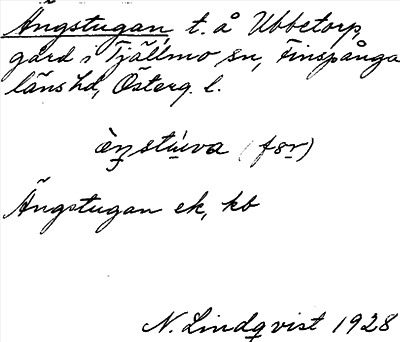 Ängstugan t. å Ubbetorp,
gård i Tjällmo sn, Finspånga
läns hd, Österg. l.
(fsr)
Ängstugan ek, kb
N. Lindqvist 1928